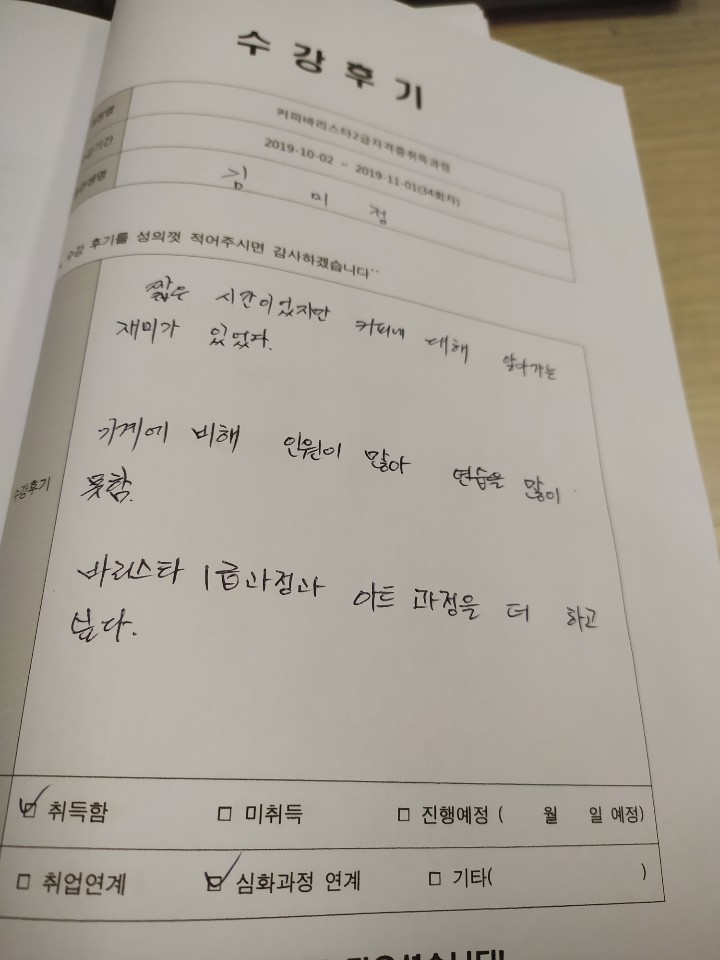 수강후기
커피바리스타2급자격증취득과정
2019-10-02 ~ 2019-11-01(34회차)
김 미 정
수강 후기를 성의껏 적어주시면 감사하겠습니다^^
짧은 시간이었지만 커피에 대해 알아가는
재미가 있었다.
기계에 비해 인원이 많아 연습을 많이
못함.
수강후기
바리스타 1급과정과 아트 과정을 더 하고
싶다.
취득함 □ 미취득 □ 진행예정 ( 월 일 예정)
□ 취업연계 심화과정 연계 □ 기타( )